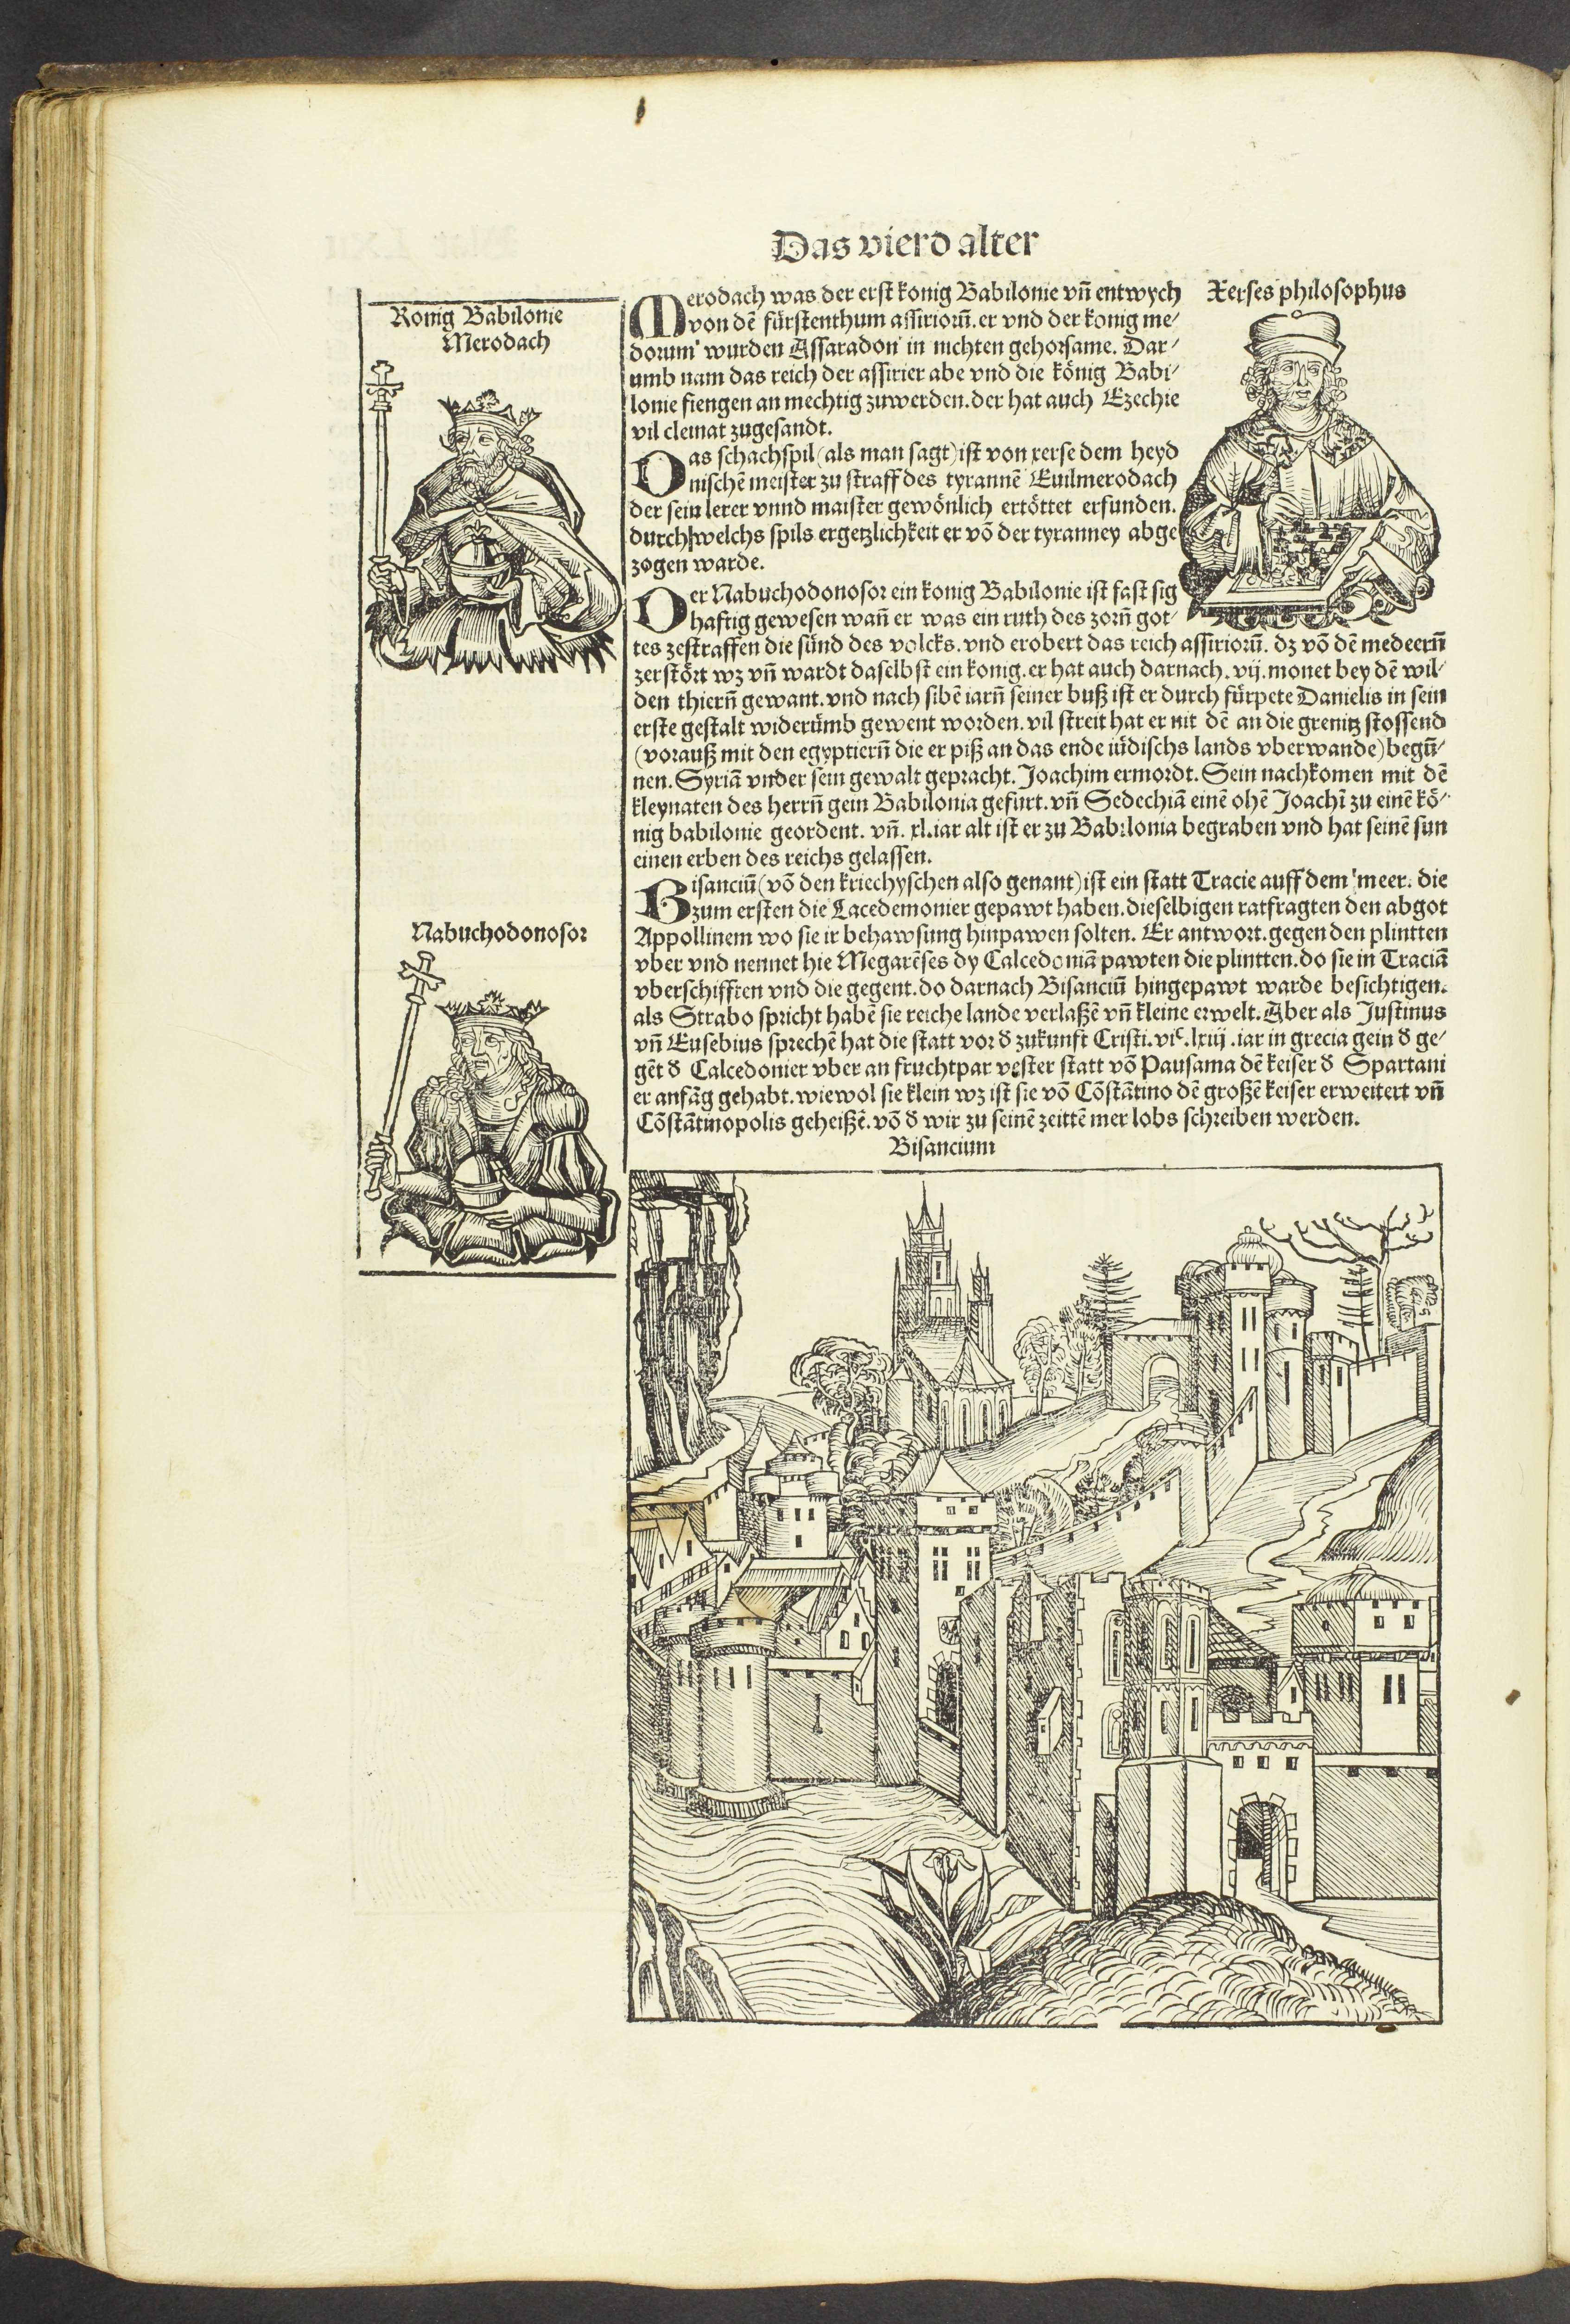 Das vierd alter
Konig Babilonie
Merodach
Merodach was der erst konig Babilonie vñ entwych
von dē fürstenthum assiriorū. er vnd der konig me/
dorum wurden Assaradon in nichten gehorsame. Dar/
umb nam das reich der assirier abe vnd die könig Babi/
lonie fiengen an mechtig zuwerden. der hat auch Ezechie
vil cleinat zugesandt.
Xerses philosophus
Das schachspil (als man sagt) ist von xerse dem heyd
nischē meister zu straff des tyrannē Euilmerodach
der sein lerer vnnd maister gewönlich ertöttet erfunden.
durch welchs spils ergetzlichkeit er vō der tyranney abge
zogen warde.
Der Nabuchodonosor ein konig Babilonie ist fast sig
haftig gewesen wañ er was ein ruth des zorñ got/
tes zestraffen die sünd des volcks. vnd erobert das reich assiriorū. dz vō dē medeerñ
zerstört wz vñ wardt daselbst ein konig. er hat auch darnach. vij. monet bey dē wil/
den thierñ gewant. vnd nach sibē iarñ seiner buß ist er durch fürpete Danielis in sein
erste gestalt widerümb gewent worden. vil streit hat er nit dē an die grenitz stossend
(vorauß mit den egyptierñ die er piß an das ende iüdischs lands vberwande) begū/
nen. Syriā vnder sein gewalt gepracht. Joachim ermordt. Sein nachkomen mit dē
kleynaten des herrñ gein Babilonia gefürt. vñ Sedechiā einē ohē Joachī zu einē kö/
nig babilonie geordent. vñ. xl. iar alt ist er zu Babilonia begraben vnd hat seinē sun
einen erben des reichs gelassen.
Nabuchodonosor
Bisanciū (vō den kriechyschen also genant) ist ein statt Tracie auff dem meer. die
zum ersten die Lacedemonier gepawt haben. dieselbigen ratfragten den abgot
Appollinem wo sie ir behawsung hinpawen solten. Er antwort. gegen den plintten
vber vnd nennet hie Megarēses dy Calcedoniā pawten die plintten. do sie in Traciā
vberschifften vnd die gegent. do darnach Bisanciū hingepawt warde besichtigen.
als Strabo spricht habē sie reiche lande verlaßē vñ kleine erwelt. Aber als Justinus
vñ Eusebius sprechē hat die statt vor d̕ zukunft Cristi. viᶜ. lxiij. iar in grecia gein d̕ ge/
gēt d̕ Calcedonier vber an fruchtpar vester statt vō Pausama dē keiser d̕ Spartani
er anfāg gehabt. wiewol sie klein wz ist sie vō Cōstātino dē großē keiser erweitert vñ
Cōstātinopolis geheißē. vō d̕ wir zu seinē zeittē mer lobs schreiben werden.
Bisancium